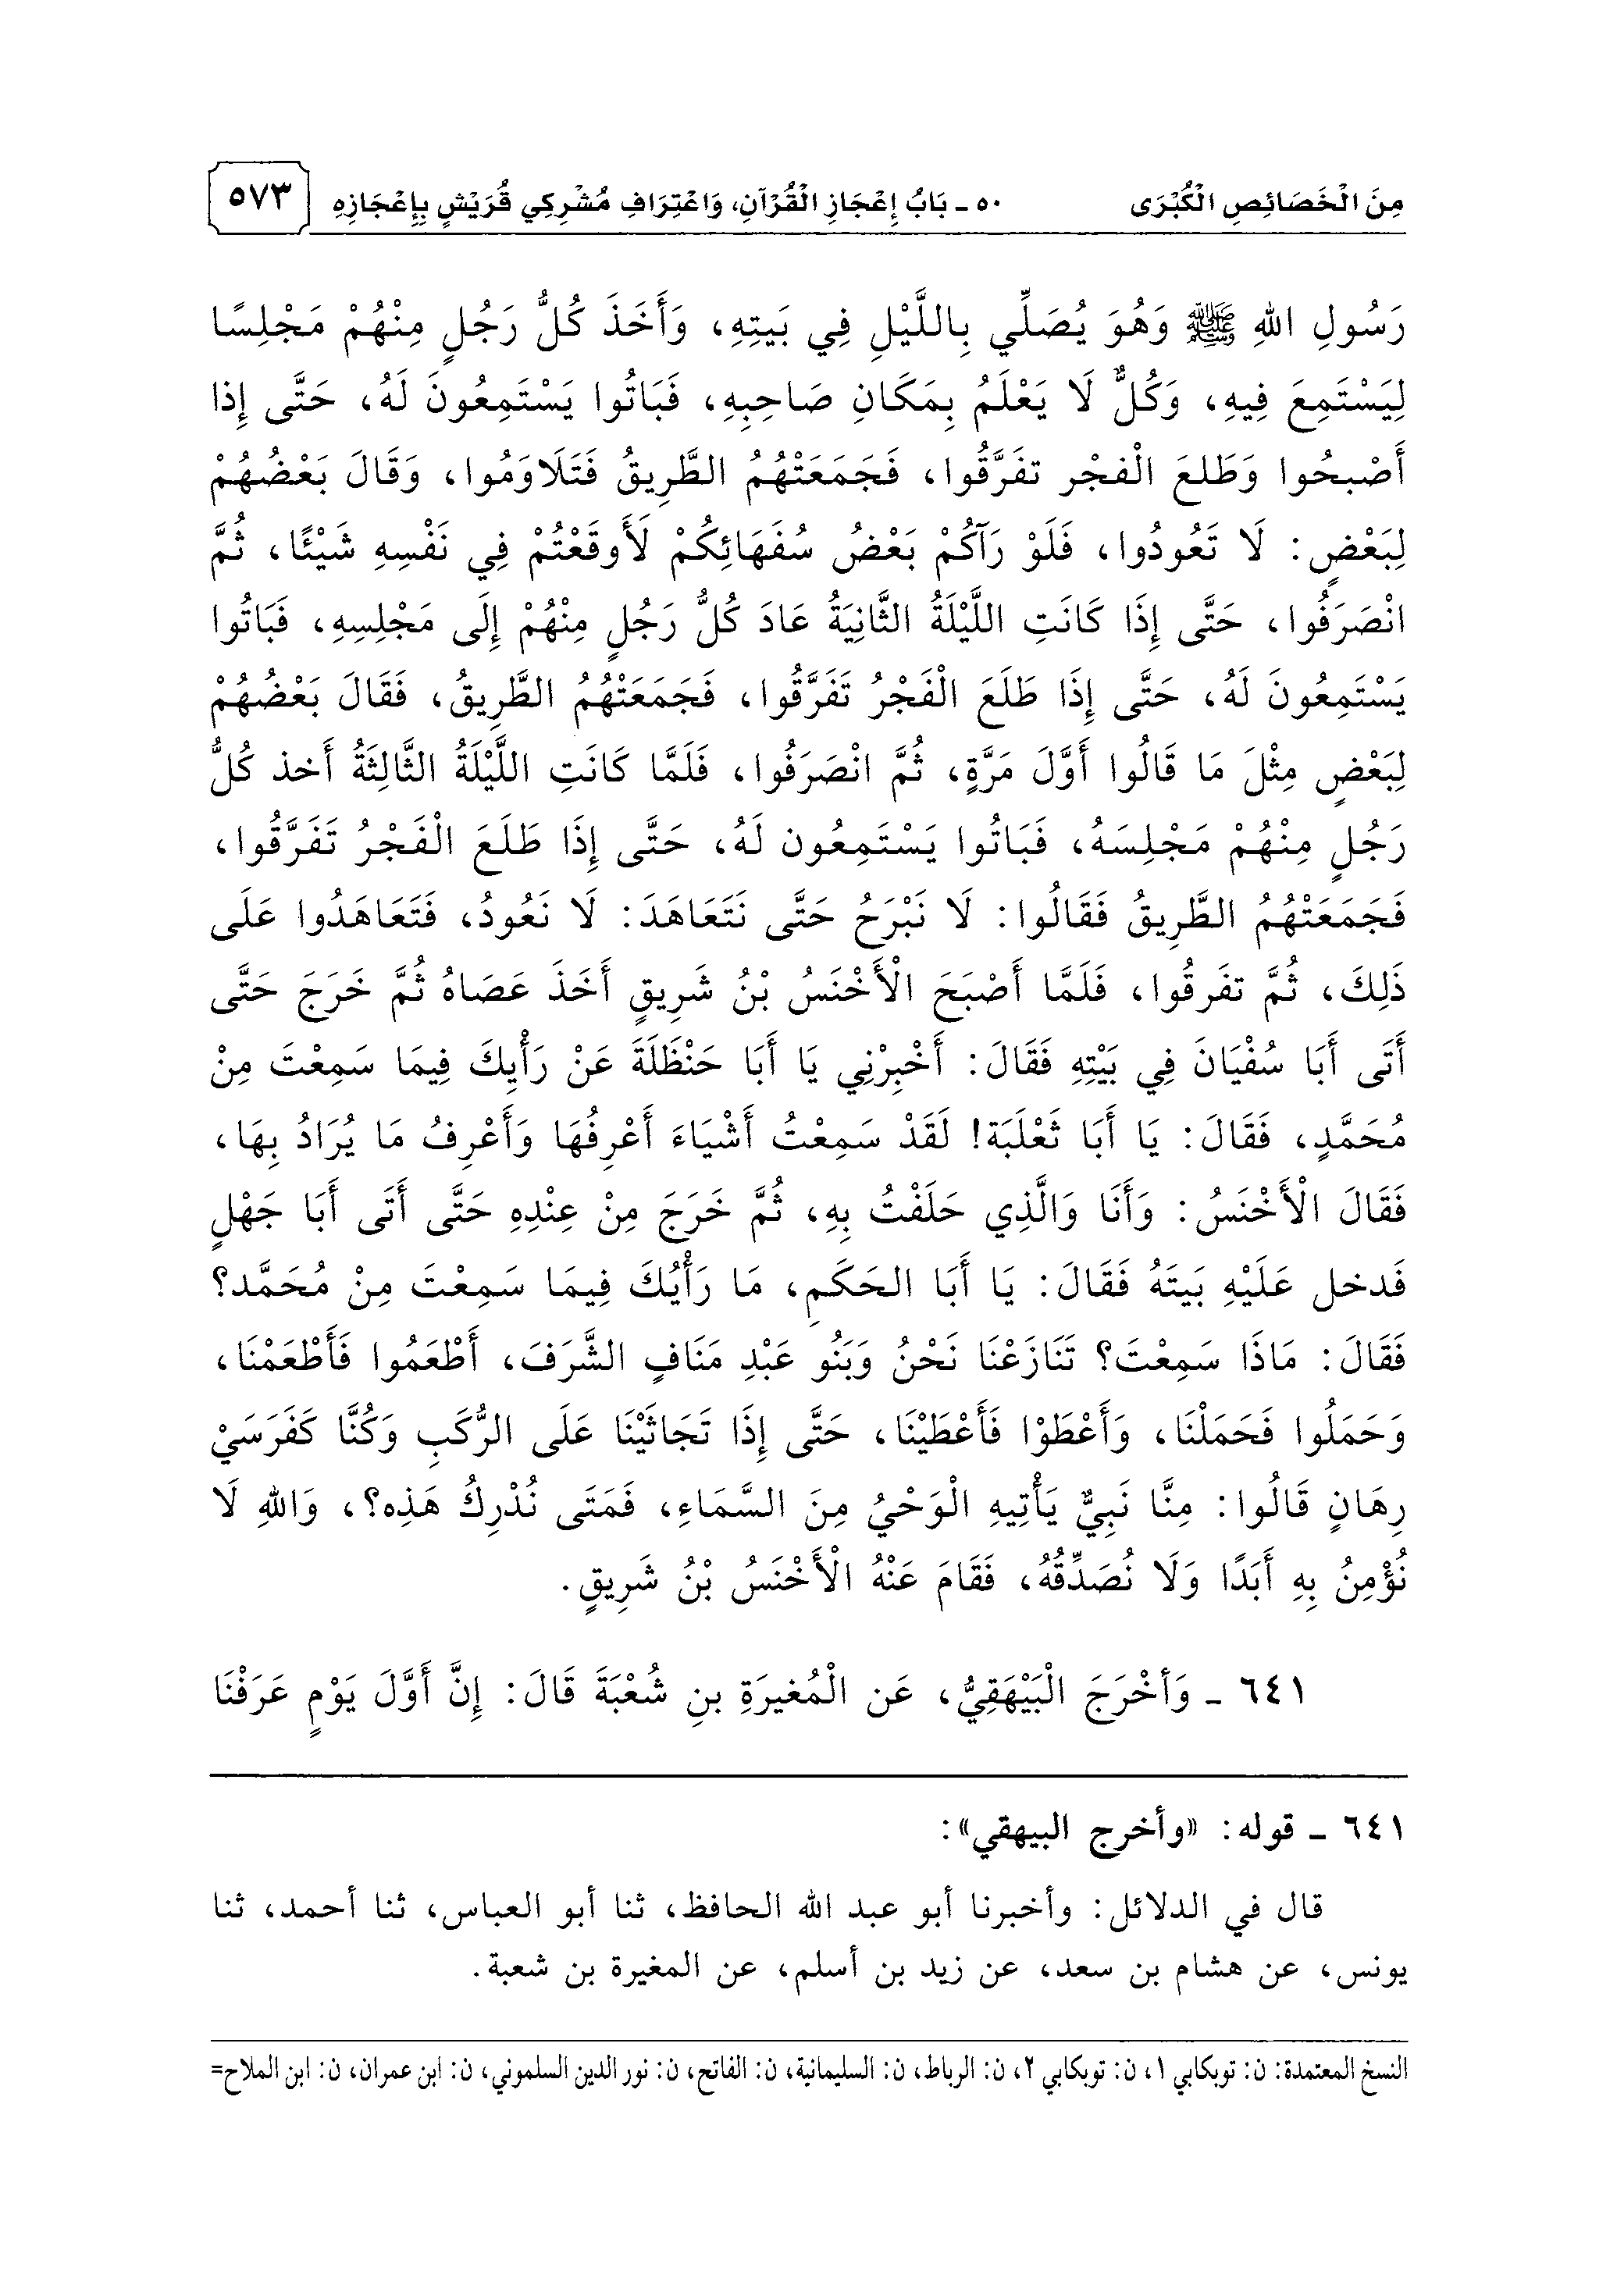 مِنَ الْخَصَائِصِ الْكُبْرَى ٥٠ ـ بَابُ إِعْجَازِ الْقُرْآنِ، وَاعْتِرَافِ مُشْرِكِي قُرَيْشٍ بِإِعْجَازِهِ ٥٧٣
رَسُولِ اللهِ ﷺ وَهُوَ يُصَلِّي بِاللَّيْلِ فِي بَيتِهِ، وَأَخَذَ كُلُّ رَجُلٍ مِنْهُمْ مَجْلِسًا
لِيَسْتَمِعَ فِيهِ، وَكُلٌّ لَا يَعْلَمُ بِمَكَانِ صَاحِبِهِ، فَبَاتُوا يَسْتَمِعُونَ لَهُ، حَتَّى إِذا
أَصْبحُوا وَطَلعَ الْفجْر تفَرَّقُوا، فَجَمَعَتْهُمُ الطَّرِيقُ فَتَلَاوَمُوا، وَقَالَ بَعْضُهُمْ
لِبَعْضٍ: لَا تَعُودُوا، فَلَوْ رَآكُمْ بَعْضُ سُفَهَائِكُمْ لَأَوقَعْتُمْ فِي نَفْسِهِ شَيْئًا، ثُمَّ
انْصَرَفُوا، حَتَّى إِذَا كَانَتِ اللَّيْلَةُ الثَّانِيَةُ عَادَ كُلُّ رَجُلٍ مِنْهُمْ إِلَى مَجْلِسِهِ، فَبَاتُوا
يَسْتَمِعُونَ لَهُ، حَتَّى إِذَا طَلَعَ الْفَجْرُ تَفَرَّقُوا، فَجَمَعَتْهُمُ الطَّرِيقُ، فَقَالَ بَعْضُهُمْ
لِبَعْضٍ مِثْلَ مَا قَالُوا أَوَّلَ مَرَّةٍ، ثُمَّ انْصَرَفُوا، فَلَمَّا كَانَتِ اللَّيْلَةُ الثَّالِثَةُ أَخذ كُلُّ
رَجُلٍ مِنْهُمْ مَجْلِسَهُ، فَبَاتُوا يَسْتَمِعُون لَهُ، حَتَّى إِذَا طَلَعَ الْفَجْرُ تَفَرَّقُوا،
فَجَمَعَتْهُمُ الطَّرِيقُ فَقَالُوا: لَا نَبْرَحُ حَتَّى نَتَعَاهَدَ: لَا نَعُودُ، فَتَعَاهَدُوا عَلَى
ذَلِكَ، ثُمَّ تفَرقُوا، فَلَمَّا أَصْبَحَ الْأَخْنَسُ بْنُ شَرِيقٍ أَخَذَ عَصَاهُ ثُمَّ خَرَجَ حَتَّى
أَتَى أَبَا سُفْيَانَ فِي بَيْتِهِ فَقَالَ: أَخْبِرْنِي يَا أَبَا حَنْظَلَةَ عَنْ رَأْيِكَ فِيمَا سَمِعْتَ مِنْ
مُحَمَّدٍ، فَقَالَ: يَا أَبَا ثَعْلَبَة! لَقَدْ سَمِعْتُ أَشْيَاءَ أَعْرِفُهَا وَأَعْرِفُ مَا يُرَادُ بِهَا،
فَقَالَ الْأَخْنَسُ: وَأَنَا وَالَّذِي حَلَفْتُ بِهِ، ثُمَّ خَرَجَ مِنْ عِنْدِهِ حَتَّى أَتَى أَبَا جَهْلٍ
فَدخل عَلَيْهِ بَيتَهُ فَقَالَ: يَا أَبَا الحَكَمِ، مَا رَأْيُكَ فِيمَا سَمِعْتَ مِنْ مُحَمَّد؟
فَقَالَ: مَاذَا سَمِعْتَ؟ تَنَازَعْنَا نَحْنُ وَبَنُو عَبْدِ مَنَافٍ الشَّرَفَ، أَطْعَمُوا فَأَطْعَمْنَا،
وَحَمَلُوا فَحَمَلْنَا، وَأَعْطَوْا فَأَعْطَيْنَا، حَتَّى إِذَا تَجَاثَيْنَا عَلَى الرُّكَبِ وَكُنَّا كَفَرَسَيْ
رِهَانٍ قَالُوا: مِنَّا نَبِيٌّ يَأْتِيهِ الْوَحْيُ مِنَ السَّمَاءِ، فَمَتَى نُدْرِكُ هَذِه؟، وَاللهِ لَا
نُؤْمِنُ بِهِ أَبَدًا وَلَا نُصَدِّقُهُ، فَقَامَ عَنْهُ الْأَخْنَسُ بْنُ شَرِيقٍ.
٦٤١ ـ وَأَخْرَجَ الْبَيْهَقِيُّ، عَن الْمُغيرَةِ بنِ شُعْبَةَ قَالَ: إِنَّ أَوَّلَ يَوْمٍ عَرَفْنَا
٦٤١ ـ قوله: «وأخرج البيهقي»:
قال في الدلائل: وأخبرنا أبو عبد الله الحافظ، ثنا أبو العباس، ثنا أحمد، ثنا
يونس، عن هشام بن سعد، عن زيد بن أسلم، عن المغيرة بن شعبة.
النسخ المعتمدة: ن: توبكابي ١، ن: توبكابي ٢، ن: الرباط، ن: السليمانية، ن: الفاتح، ن: نور الدين السلموني، ن: ابن عمران، ن: ابن الملاح=